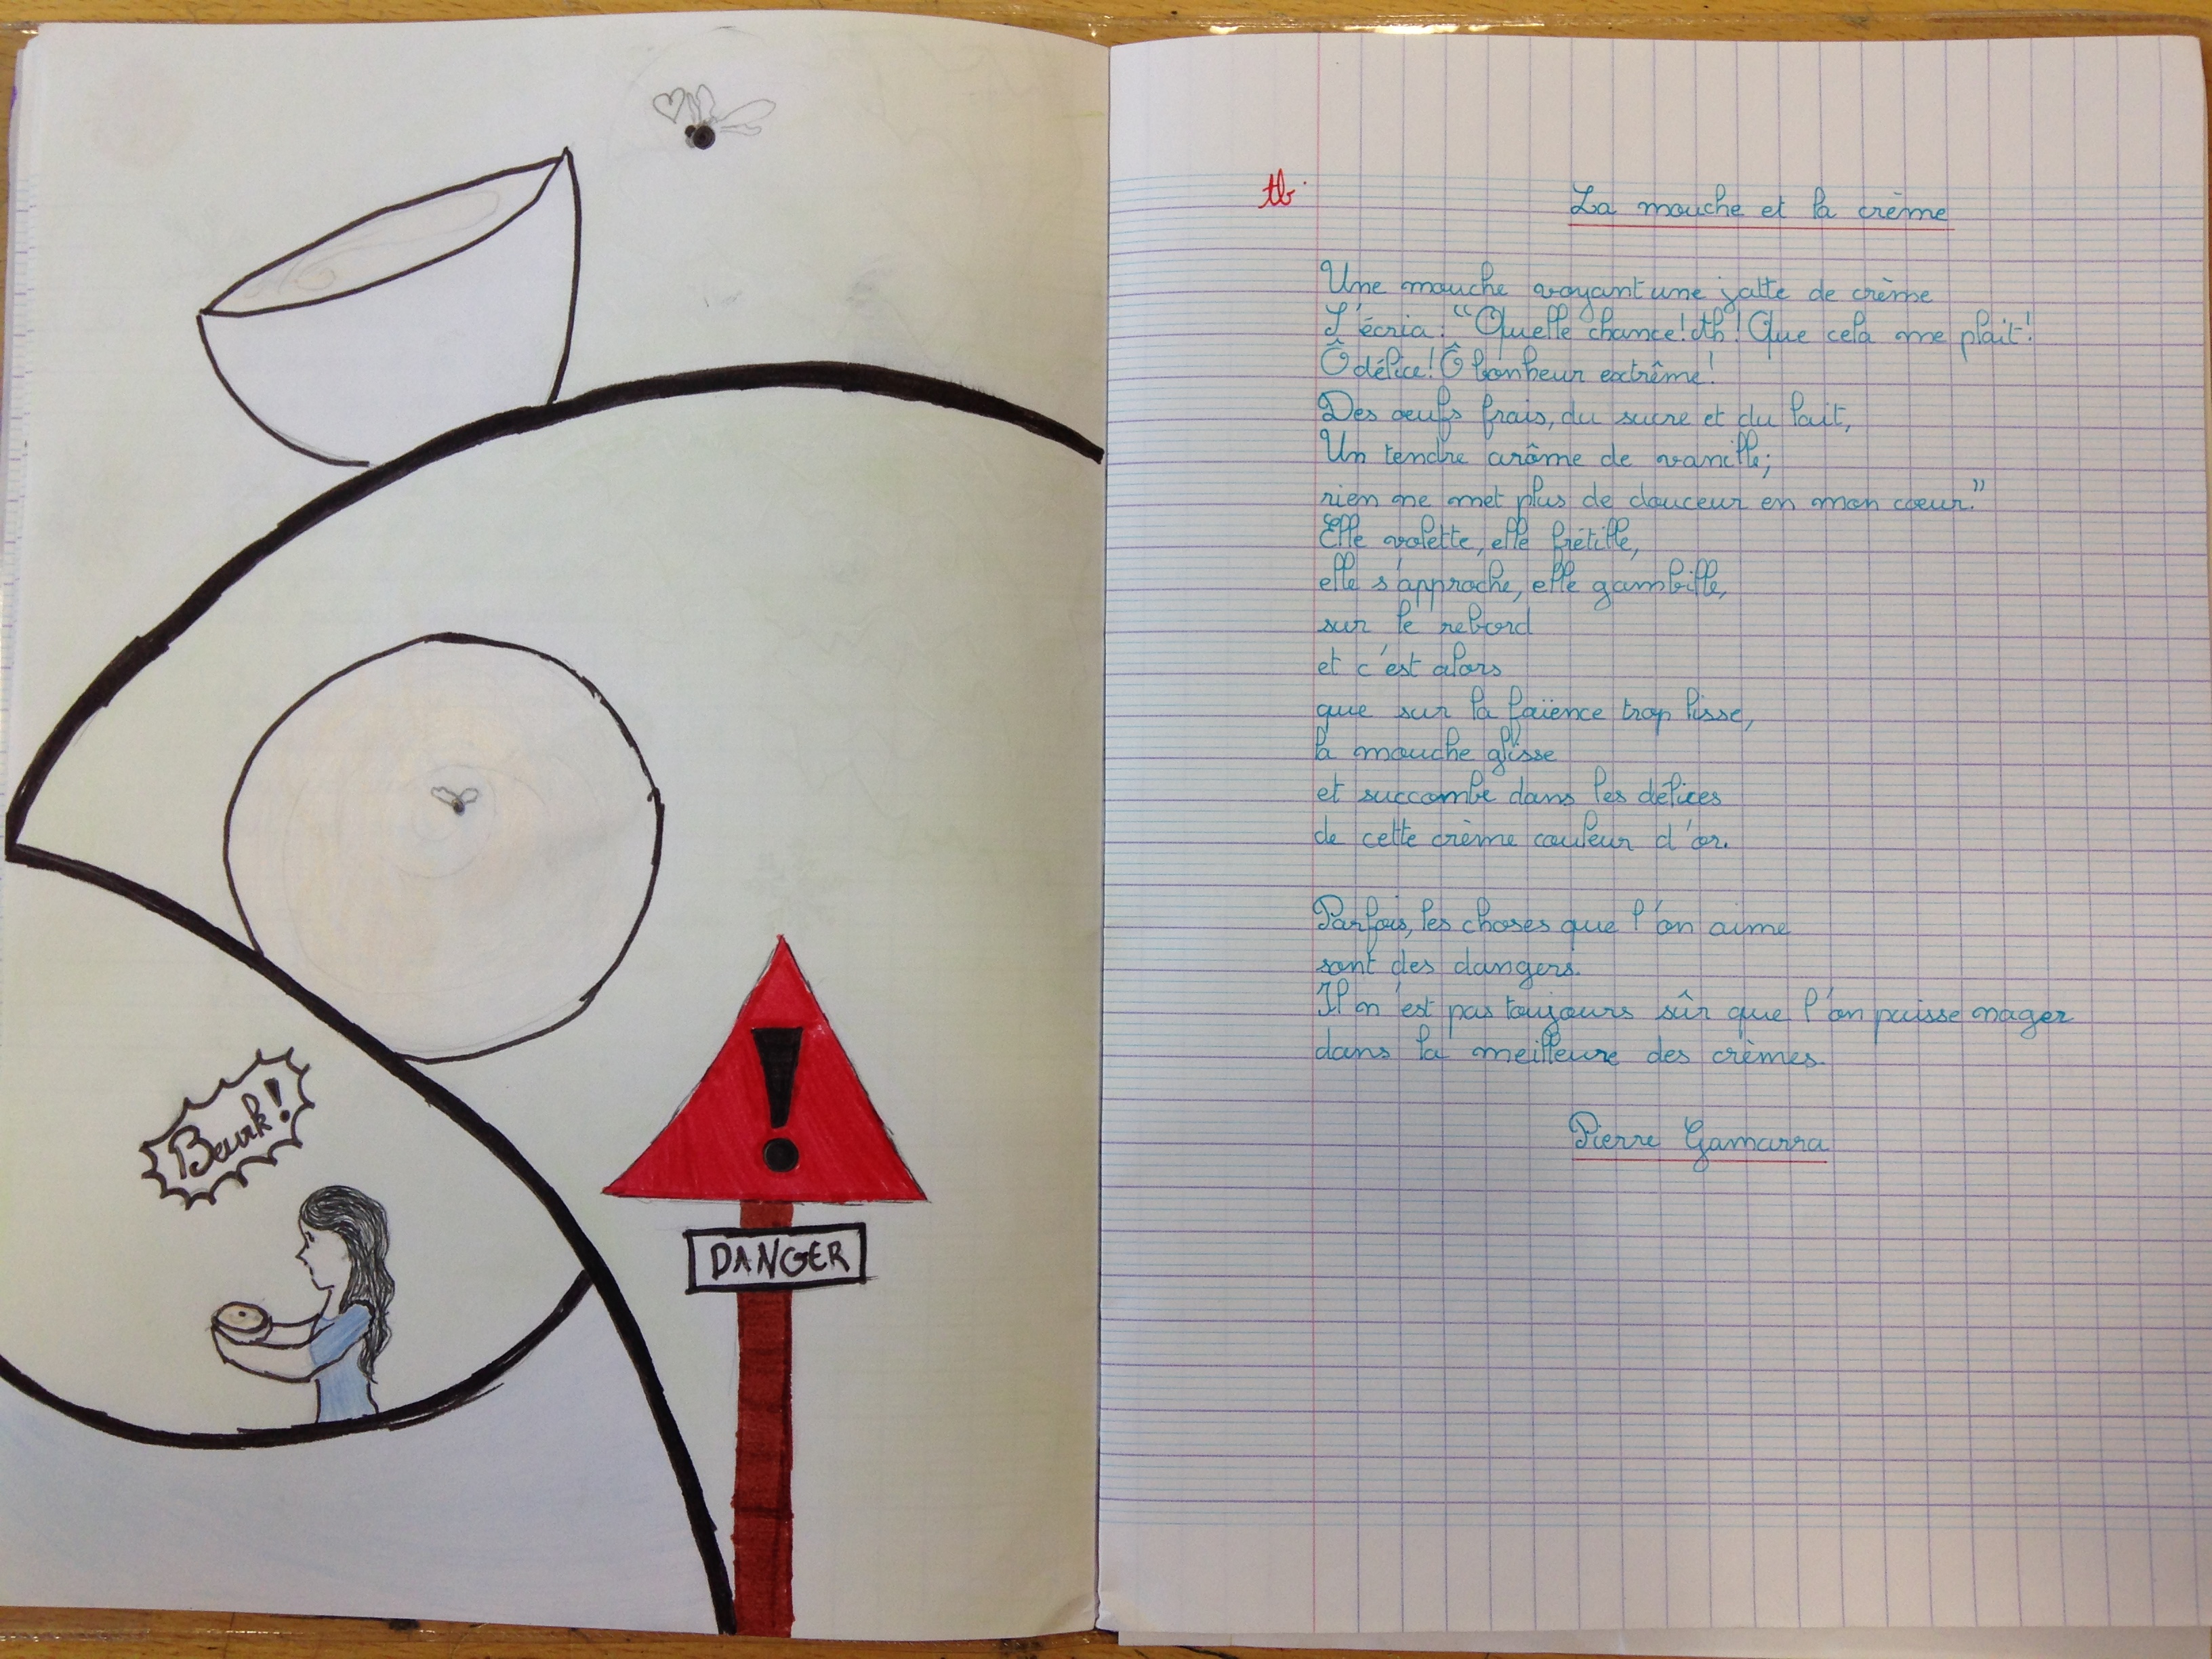 Beurk!
DANGER
tb
La mouche et la crème
Une mouche voyant une jatte de crème
S'écria: "Quelle chance! Ah! Que cela me plaît!
Ô délice! Ô bonheur extrême!
Des oeufs frais, du sucre et du lait,
Un tendre arôme de vanille;
rien ne met plus de douceur en mon coeur."
Elle volette, elle frétille,
elle s'approche, elle gambille,
sur le rebord
et c'est alors
que sur la faïence trop lisse,
la mouche glisse
et succombe dans les délices
de cette crème couleur d'or.
Parfois, les choses que l'on aime
sont des dangers.
Il n'est pas toujours sûr que l'on puisse nager
dans la meilleure des crèmes.
Pierre Gamarra